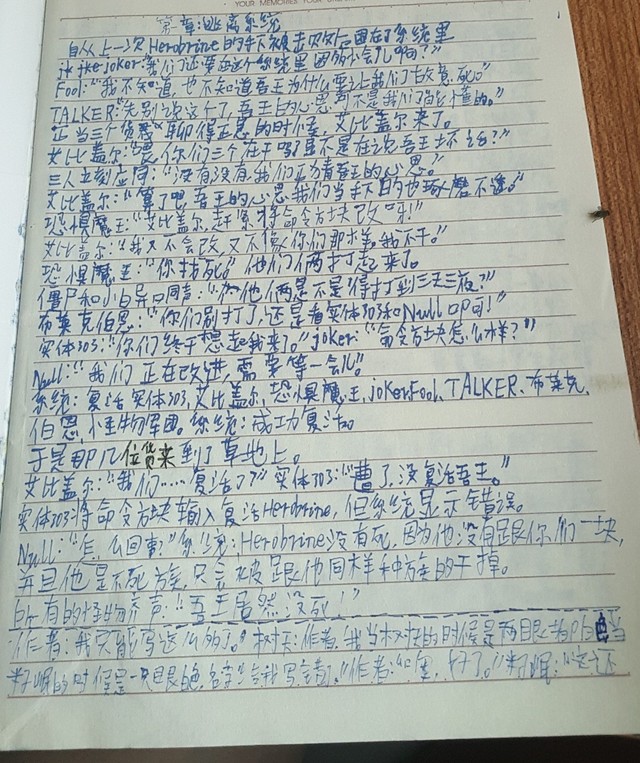 YOUR MEMORIES YOUR
第 章:逃离系统
自从上一次Herobrine的手下被击败后困在了系统里
joker:"我们还要在这个系统里困多少会儿啊?"
Fool:"我不知道,也不知道吾王为什么要让我们故意死。"
TALKER:"先别说这个了,吾王的心思可不是我们能懂的。"
正当三个货 聊得正息的时候,艾比盖尔来了。
艾比盖尔:"喂,你们三个在干吗?是不是在说吾王坏话?"
三人立刻应同:"没有没有,我们在 吾王的心思。"
艾比盖尔:"算了吧,吾王的心思我们当手下的也琢磨不透。"
恐惧魔王:"艾比盖尔,赶紧将命令方块改 !"
艾比盖尔:"我又不会改,又不像你们那样,我不干。"
恐惧魔王:"你找死。"他们俩打起来了。
僵尸和小白异口同声:" 他俩是不是得打到三天三夜?"
布莱克伯恩:"你们别打了,还是看实体303和Null 叩可!"
实体303:"你们终于想起我来了。"joker:"命令方块怎么样?"
Null:"我们正在改进,需要等一会儿。
系统:复活实体303,艾比盖尔,恐惧魔王,jokerFool,TALKER、布莱克
伯恩,小 物军团。系统:成功复活。
于是那几位货来到了草地上。
艾比盖尔:"我们....复活了?"实体303:"遭了,没复活吾王。"
实体303:将命令方块输入复活Herobrine,但系统显示错误。
Null:"怎么回事?"系统:Herobrine没有死,因为他没有跟你们一块,
并且他是不死族,只会被跟他同样种族的干掉。
所有的怪物齐声:"吾王居然没死!"
作者:我只能写这么多了。 :作者,我当 的时候是两眼 白 当
的时候是一只眼 ,名字 给我写错了。"作者:" ,好了。" :"这还